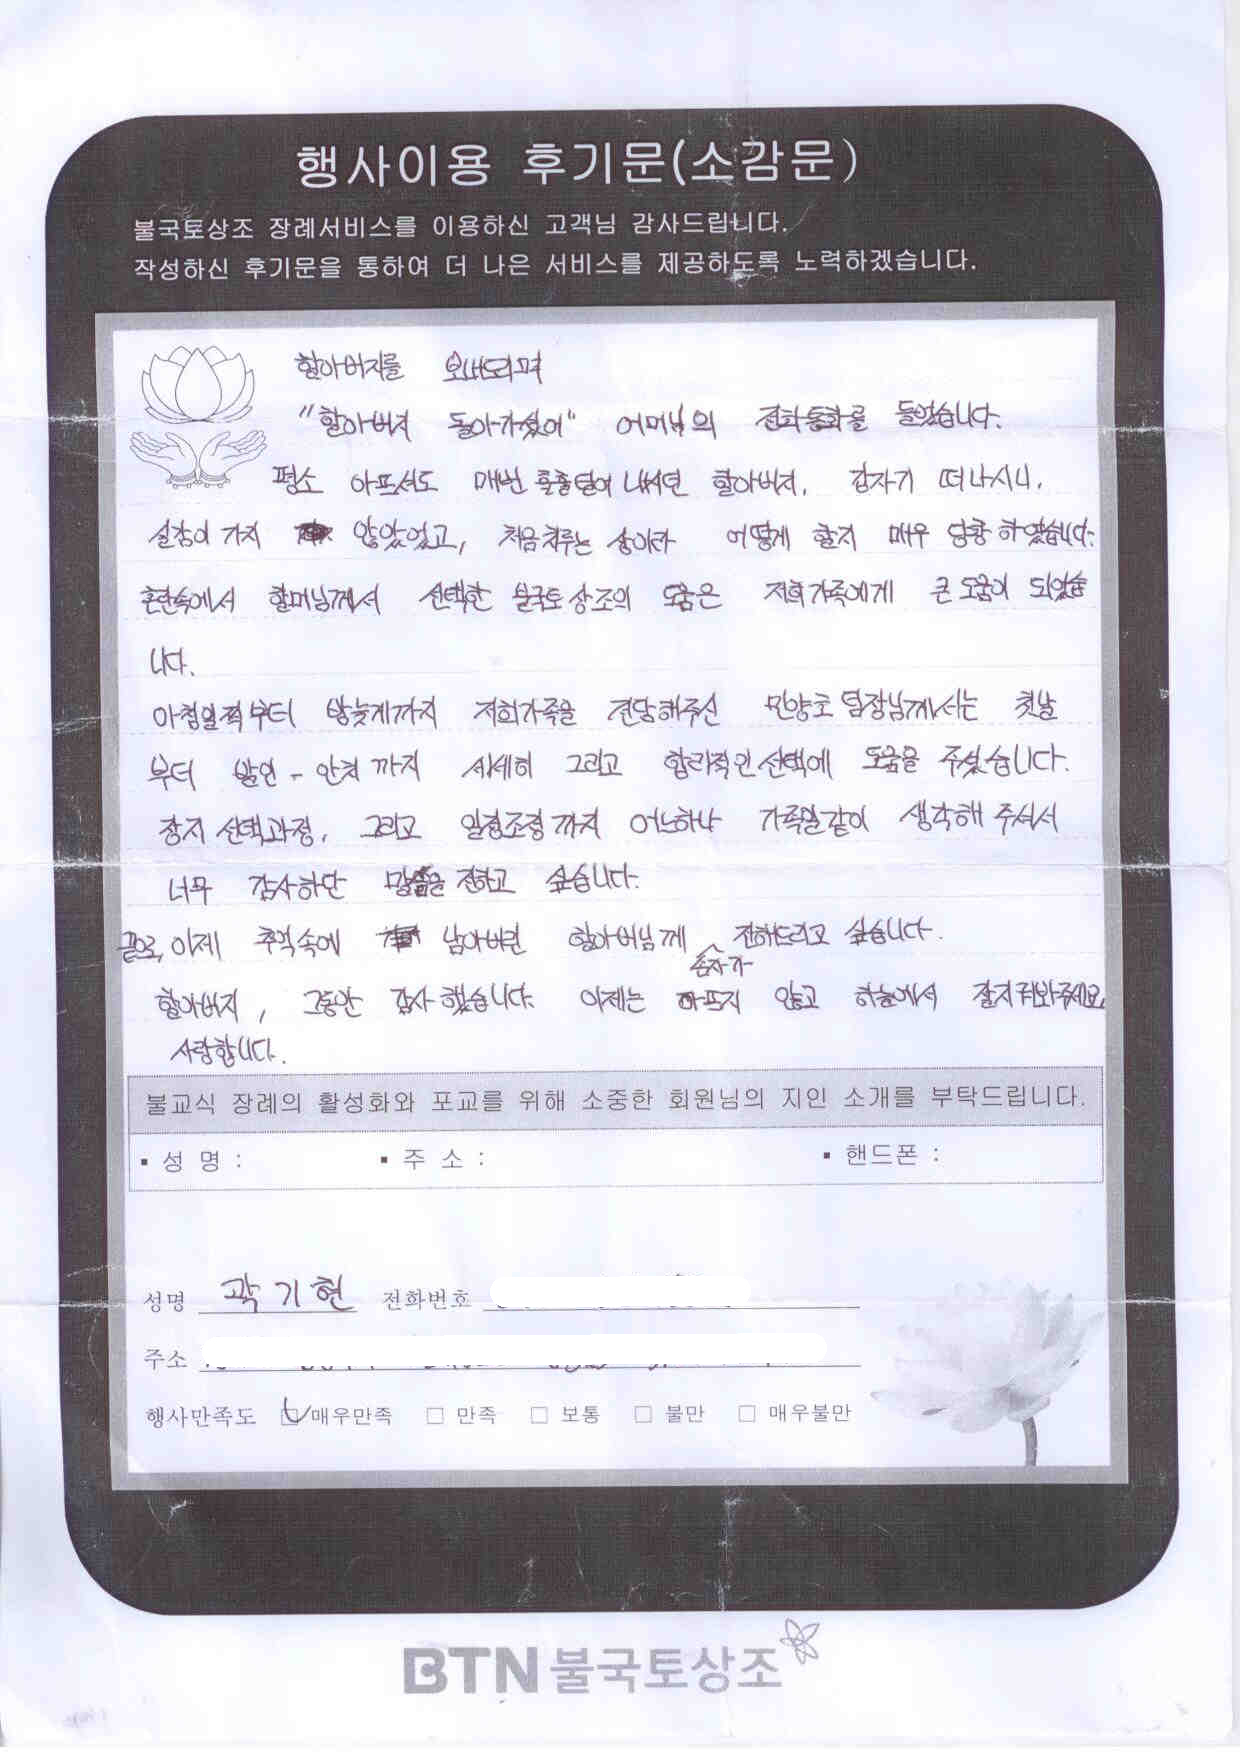 행사이용 후기문(소감문)
불국토상조 장례서비스를 이용하신 고객님 감사드립니다.
작성하신 후기문을 통하여 더 나은 서비스를 제공하도록 노력하겠습니다.
할아버지를 보내드리며
"할아버지 돌아가셨어" 어머님의 전화통화를 들었습니다.
평소 아프셔도 매번 훌훌털어 내시던 할아버지, 갑자기 떠나시니,
실감이 가지 않았었고, 처음치루는 상이라 어떻게 할지 매우 당황하였습니다.
혼란속에서 할머님께서 선택한 불국토상조의 도움은 저희가족에게 큰 도움이 되었습
니다.
아침일찍부터 밤늦게까지 저희가족을 전담해주신 민양호 팀장님께서는 첫날
부터 발인 - 안치 까지 세세히 그리고 합리적인 선택에 도움을 주셨습니다.
장지 선택과정, 그리고 일정조정까지 어느하나 가족일같이 생각해 주셔서
너무 감사하단 말씀을 전하고 싶습니다.
끝으로, 이제 추억속에 남아버린 할아버님께 전해드리고 싶습니다.
손자가
할아버지, 그동안 감사했습니다. 이제는 아프지 않고 하늘에서 잘지켜봐주세요.
사랑합니다.
불교식 장례의 활성화와 포교를 위해 소중한 회원님의 지인 소개를 부탁드립니다.
▪ 성 명 : ▪ 주 소 : ▪ 핸드폰 :
성명 곽기현 전화번호
주소
행사만족도 □ 매우만족 □ 만족 □ 보통 □ 불만 □ 매우불만
BTN불국토상조